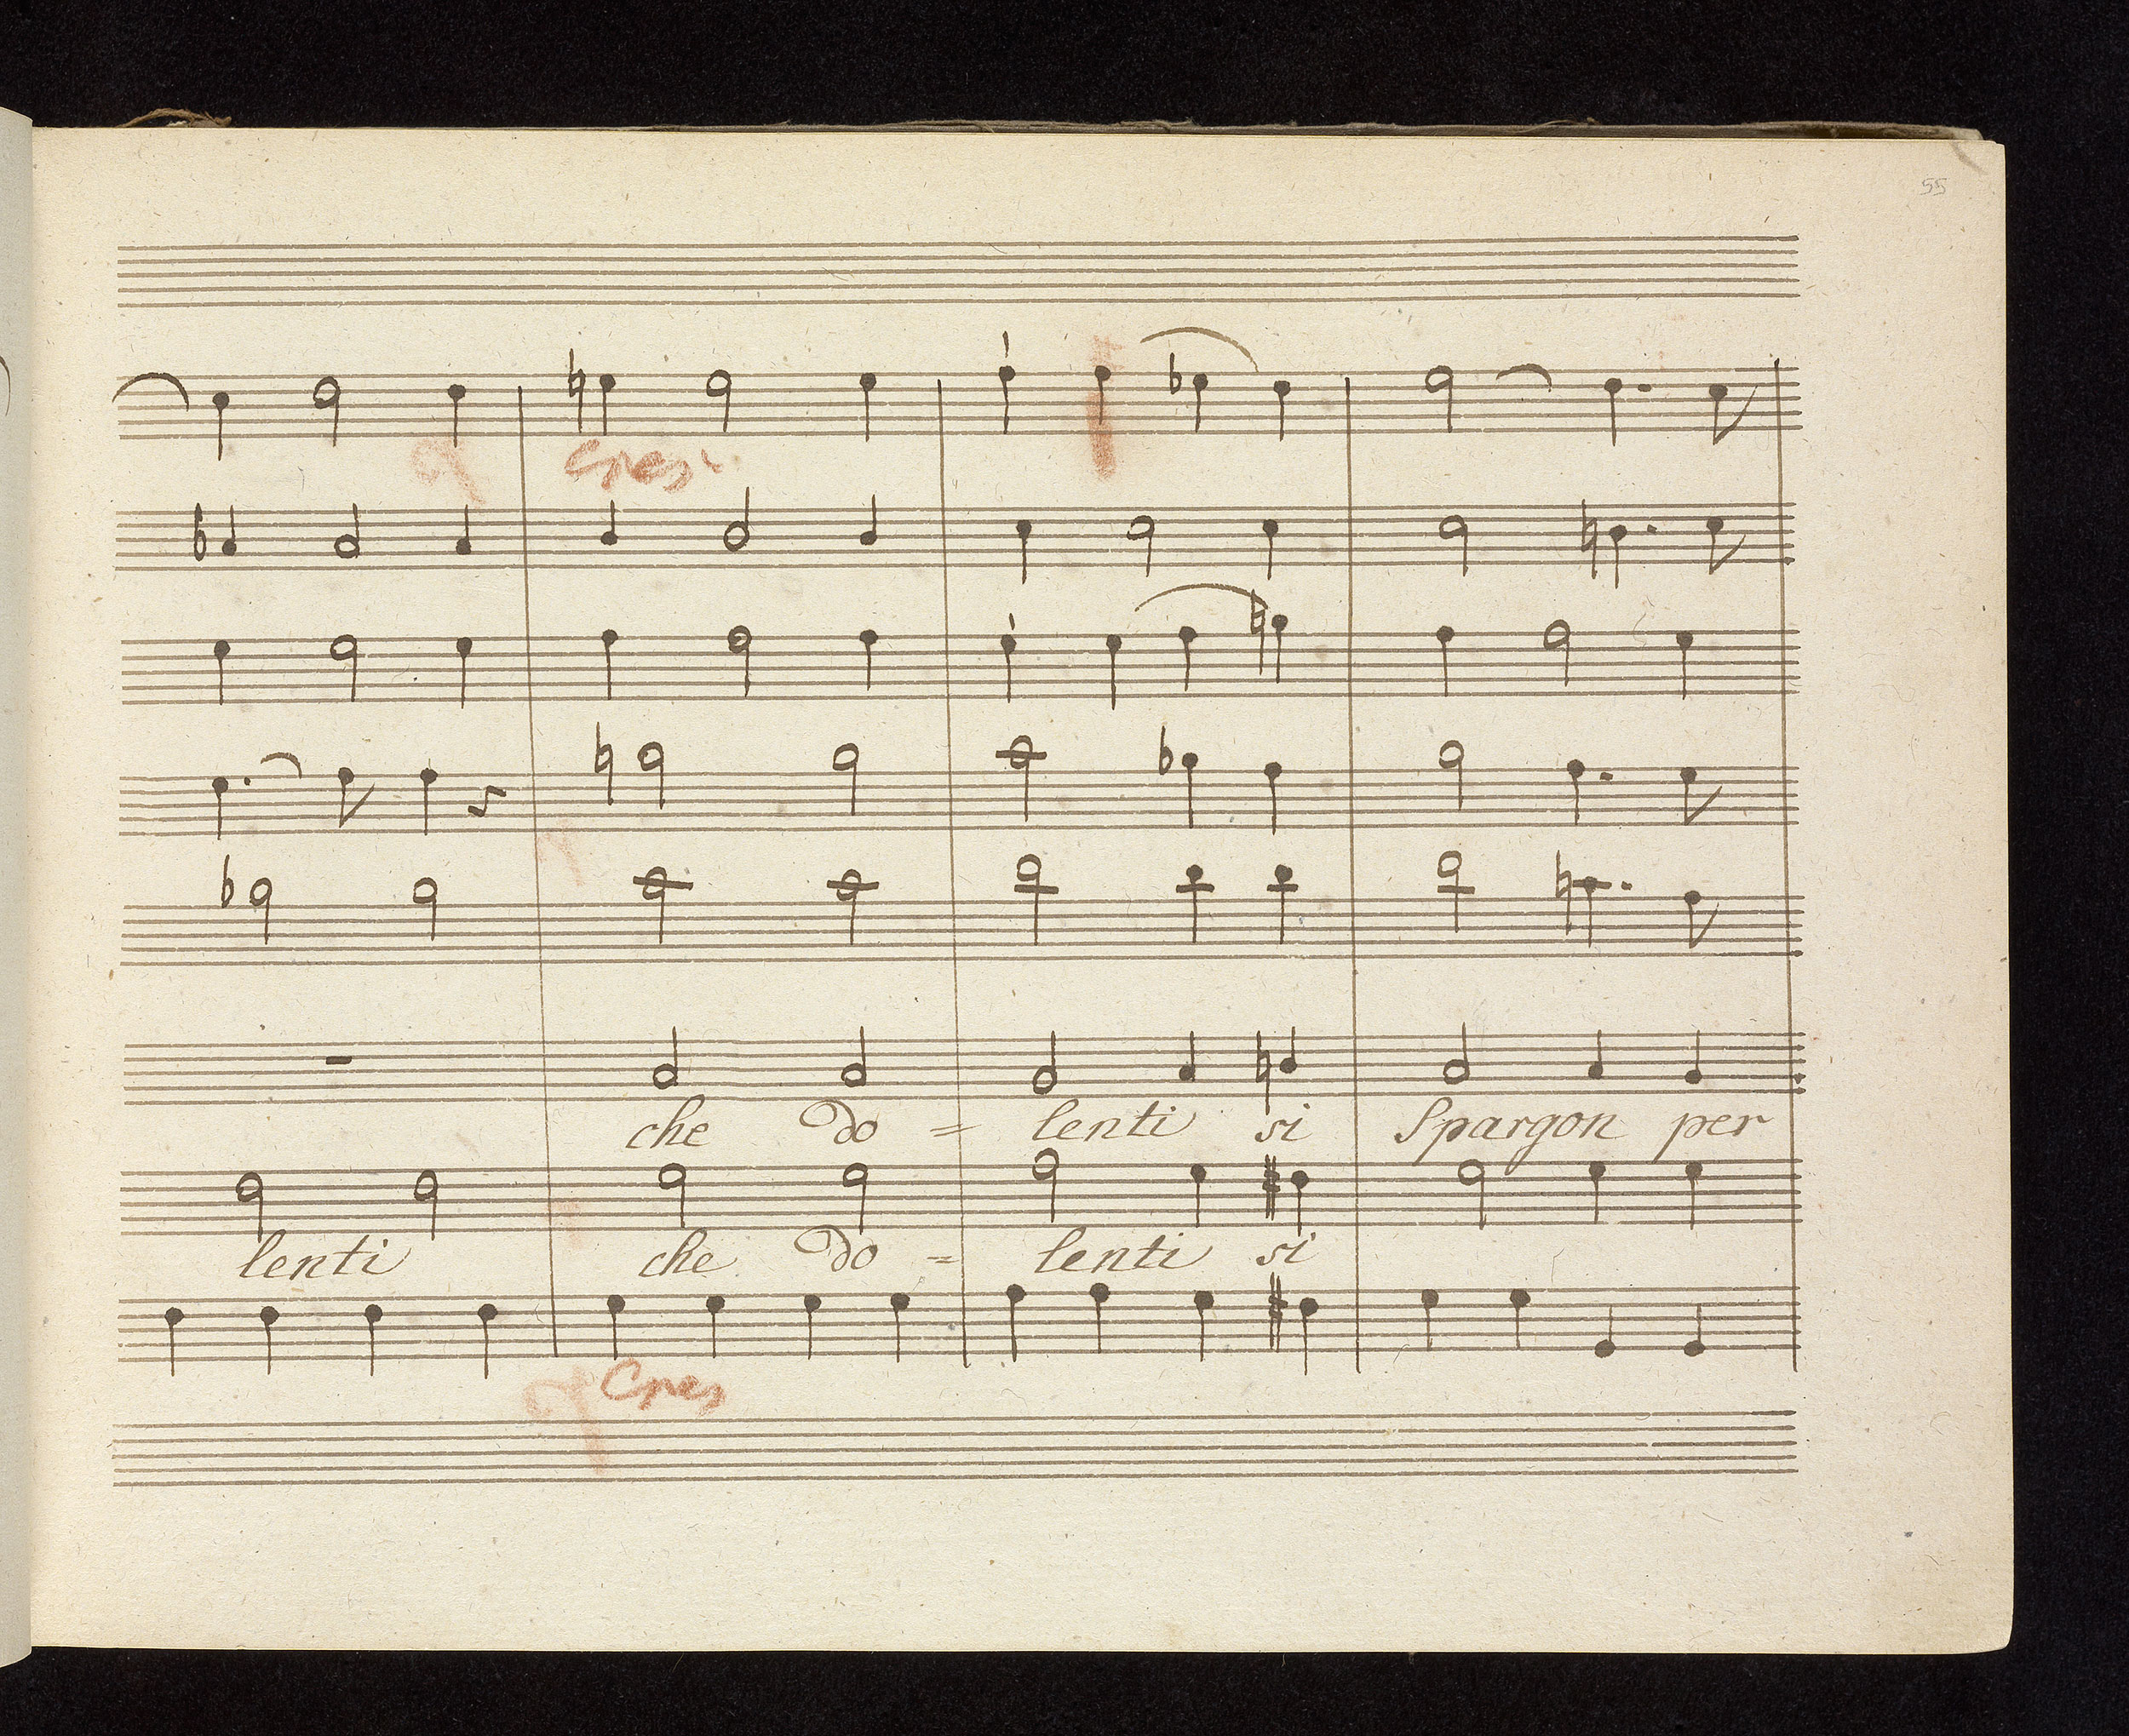 55
cres
che do = lenti si Spargon per
lenti che do = lenti si
Cres